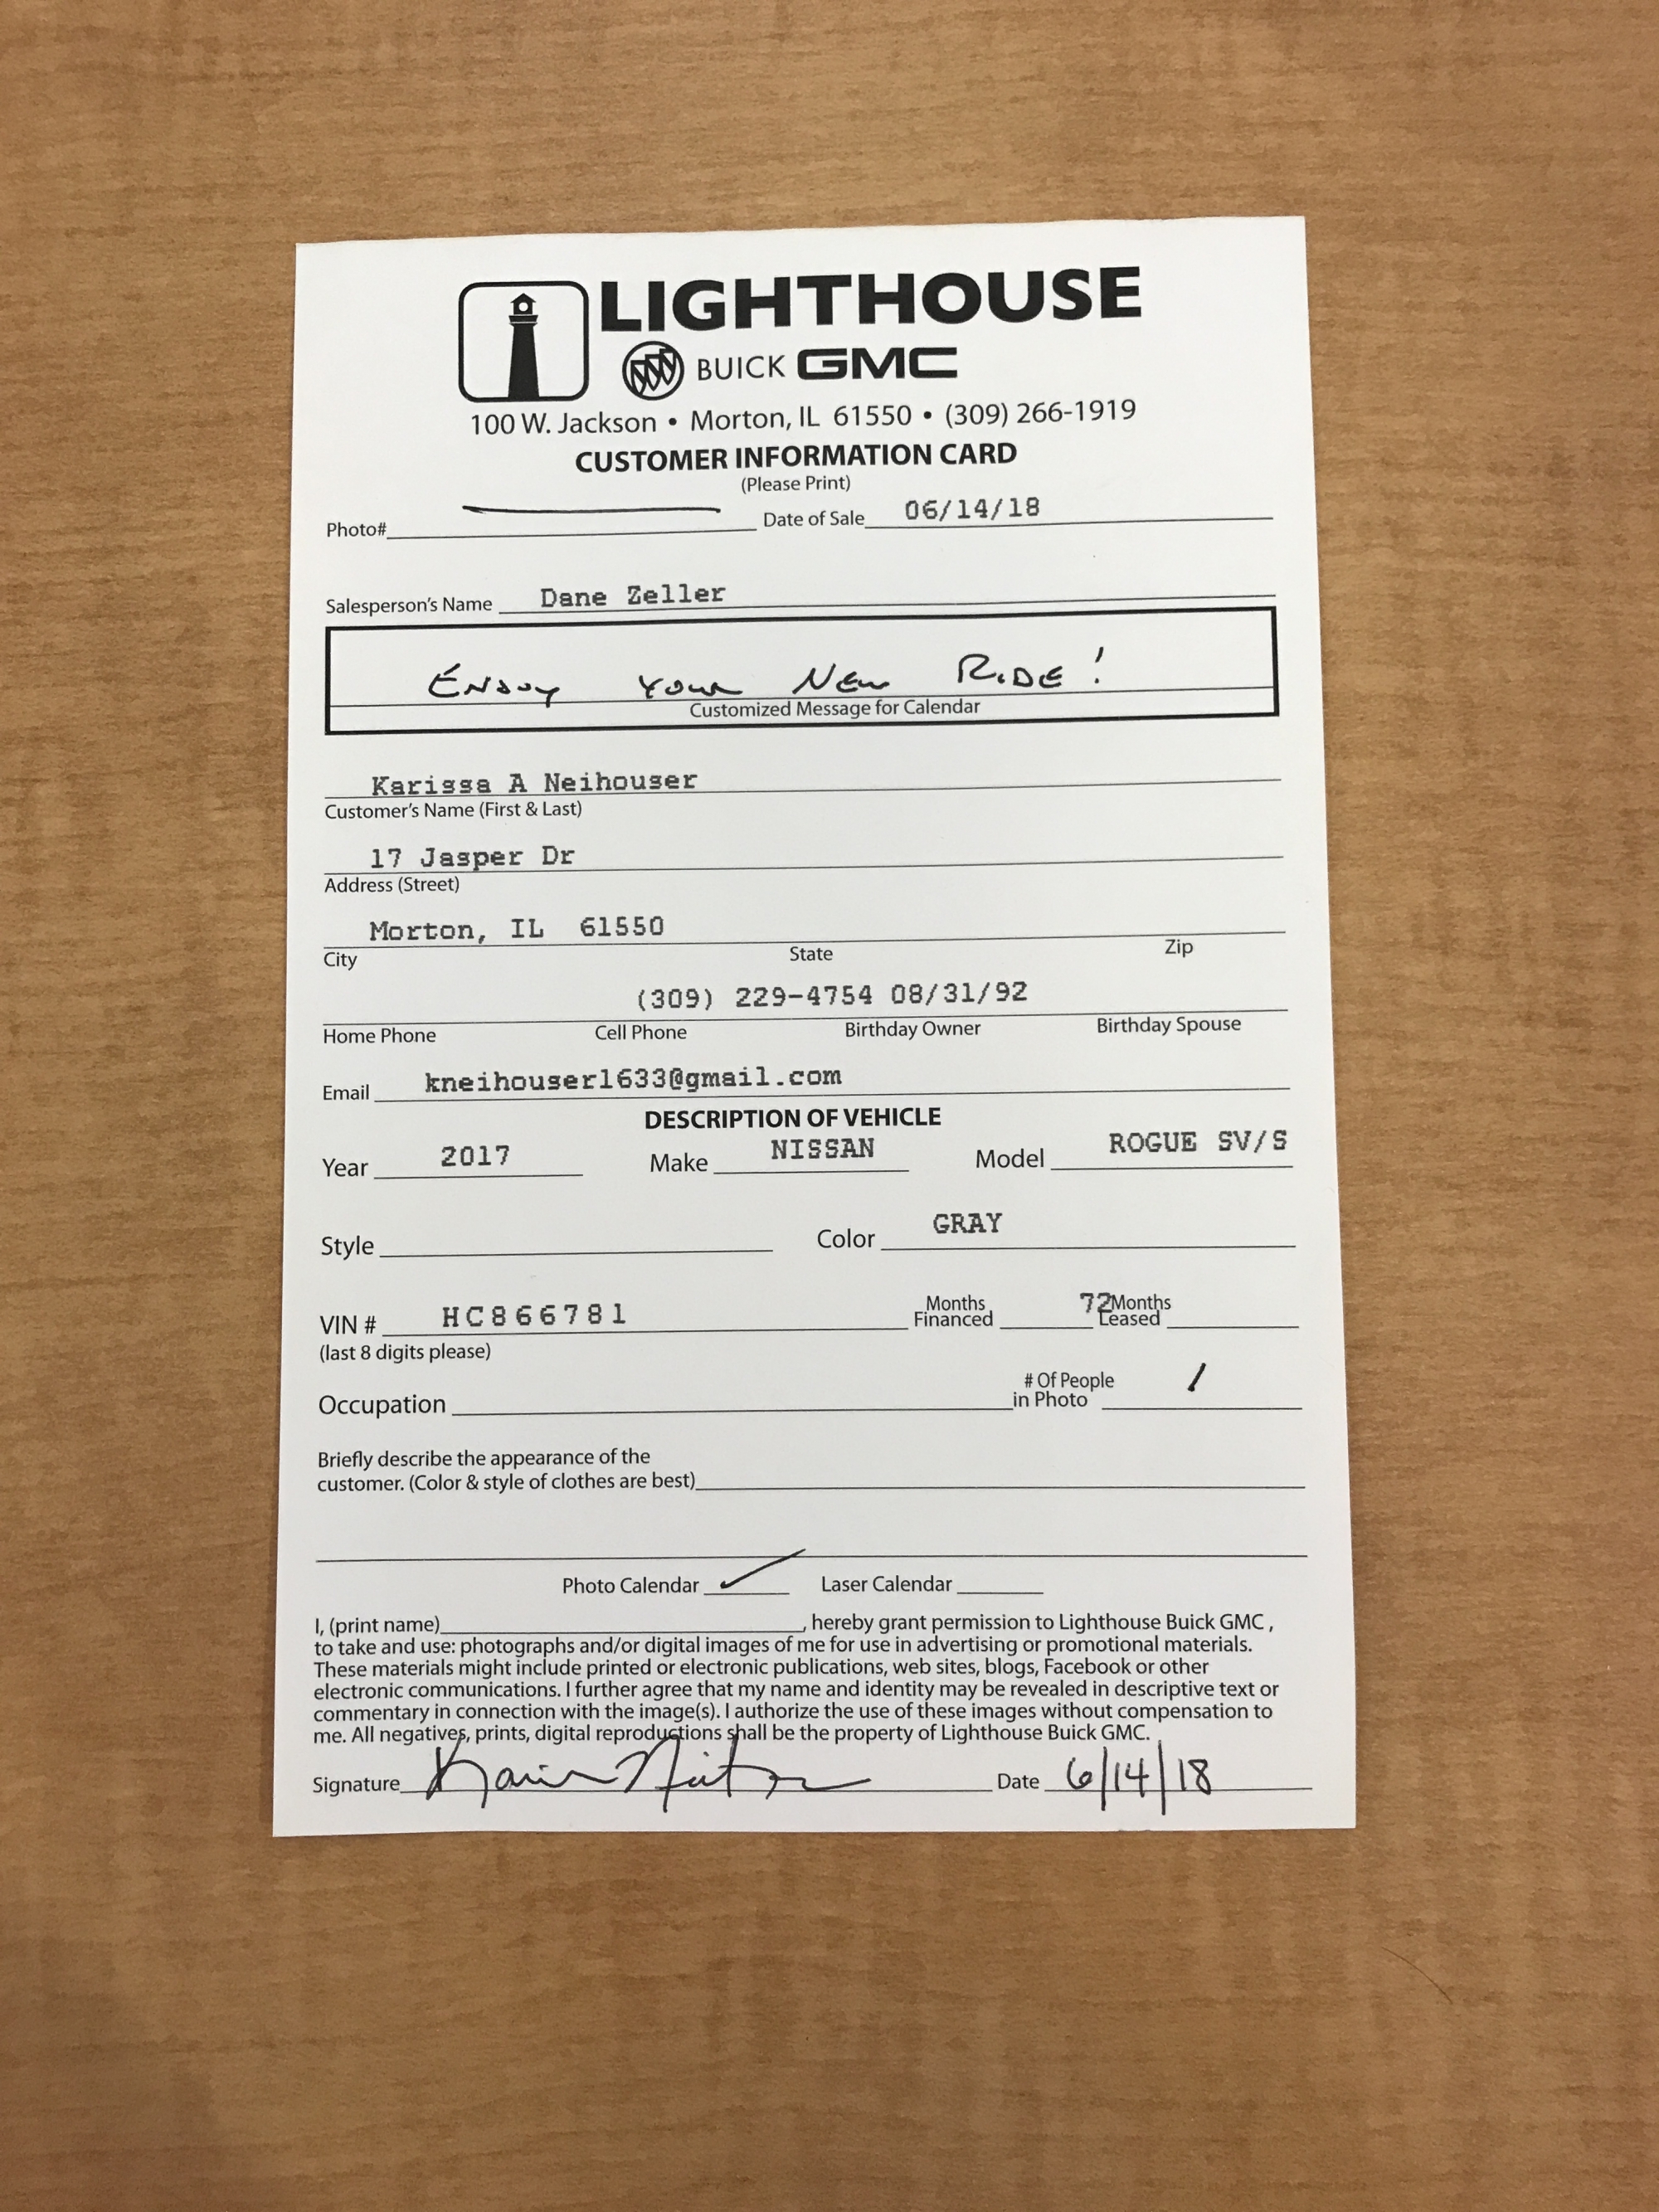 LIGHTHOUSE
BUICK GMC
100 W. Jackson • Morton, IL 61550 • (309) 266-1919
CUSTOMER INFORMATION CARD
(Please Print)
Photo# Date of Sale 06/14/18
Salesperson's Name Dane Zeller
ENJOY YOUR NEW RIDE!
Customized Message for Calendar
Karissa A Neihouser
Customer's Name (First & Last)
17 Jasper Dr
Address (Street)
Morton, IL 61550
City State Zip
(309) 229-4754 08/31/92
Home Phone Cell Phone Birthday Owner Birthday Spouse
Email kneihouser1633@gmail.com
DESCRIPTION OF VEHICLE
Year 2017 Make NISSAN Model ROGUE SV/S
Style Color GRAY
VIN # HC866781 Months Financed 72 Months Leased
(last 8 digits please)
Occupation # Of People in Photo 1
Briefly describe the appearance of the
customer. (Color & style of clothes are best)
Photo Calendar ✓ Laser Calendar
I, (print name) , hereby grant permission to Lighthouse Buick GMC ,
to take and use: photographs and/or digital images of me for use in advertising or promotional materials.
These materials might include printed or electronic publications, web sites, blogs, Facebook or other
electronic communications. I further agree that my name and identity may be revealed in descriptive text or
commentary in connection with the image(s). I authorize the use of these images without compensation to
me. All negatives, prints, digital reproductions shall be the property of Lighthouse Buick GMC.
Signature Date 6/14/18